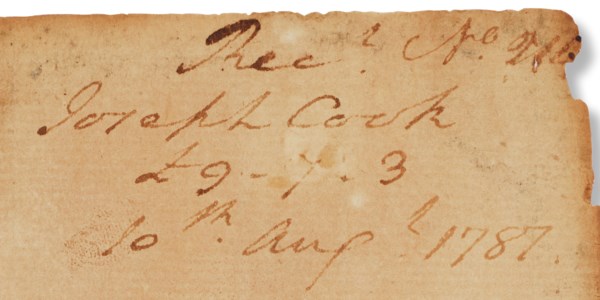 Rec.t No
Joseph Cook
£9-7-3
10th. Augt. 1787.